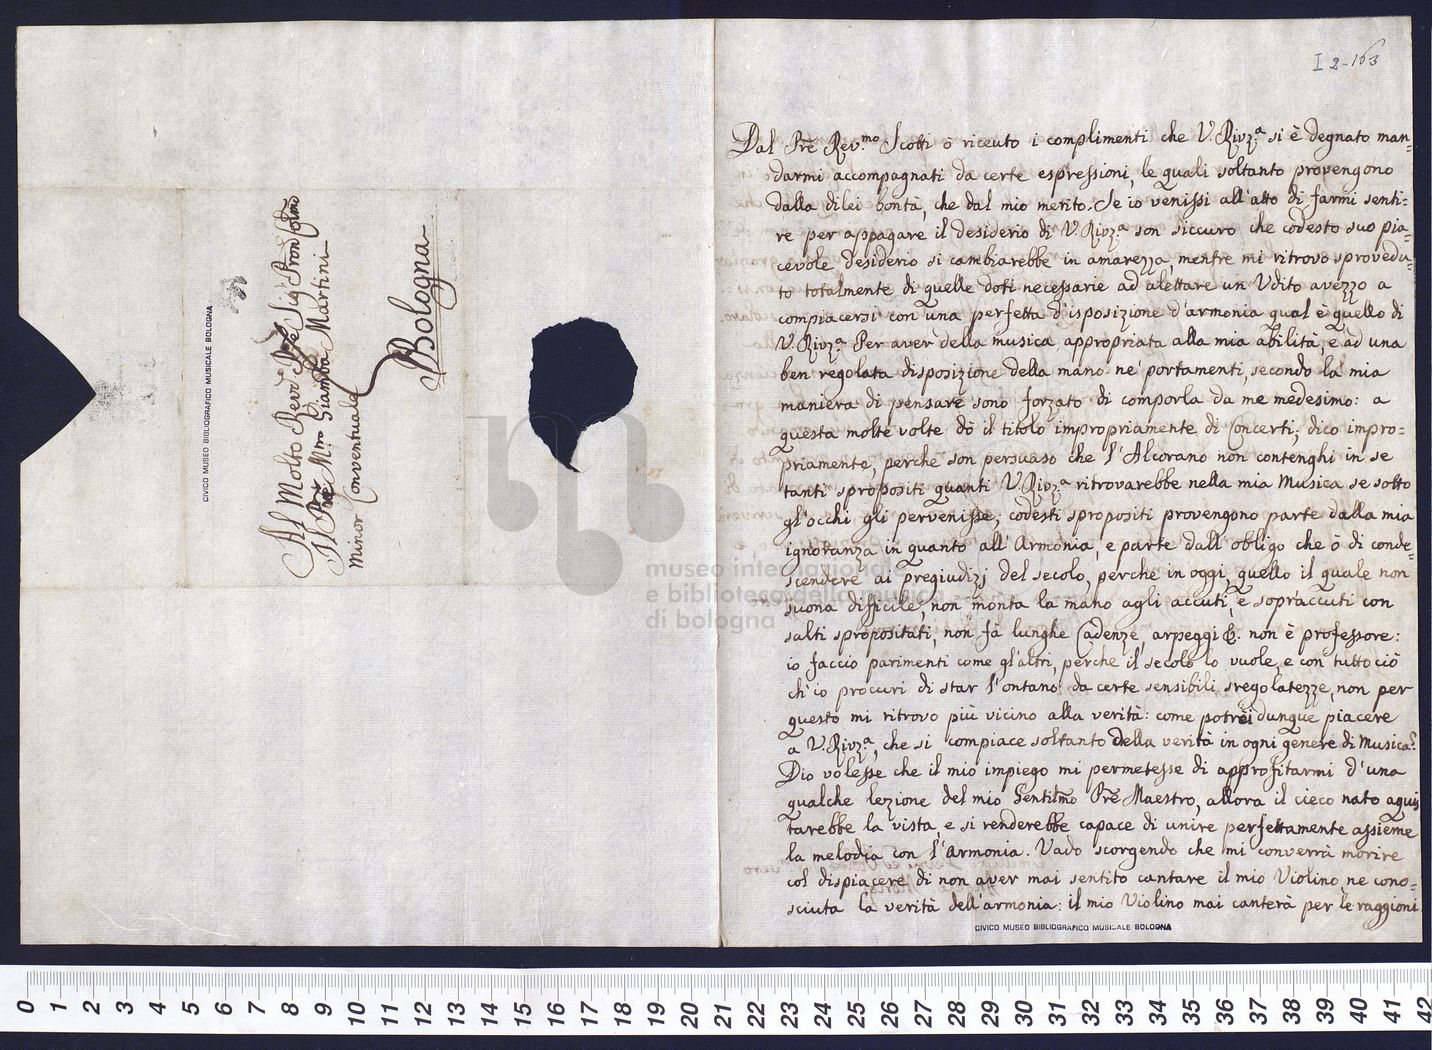 I 2-163
Dal Prē Rev.mo Scotti ò riceuto i complimenti che V. Rivz.a si è degnato man=
darmi accompagnati da certe espressioni, le quali soltanto provengono
dalla dilei bontà, che dal mio merito. Se io venissi all'atto di farmi senti=
re per appagare il desiderio di V. Rivz.a son siccuro che codesto suo pia=
cevole desiderio si cambiarebbe in amarezza, mentre mi ritrovo sprovedu=
to totalmente di quelle doti necessarie ad alettare un Udito avezzo a
compiacersi con una perfetta d'isposizione d'armonia qual è quello di
V. Rivz.a Per aver della musica appropriata alla mia abilità, e ad una
ben regolata disposizione della mano ne' portamenti, secondo la mia
maniera di pensare sono forzato di comporla da me medesimo: a
questa molte volte dò il titolo impropriamente di Concerti; dico impro=
priamente, perche son persuaso che l'Alcorano non contenghi in se
tanti spropositi quanti V. Rivz.a ritrovarebbe nella mia Musica se sotto
gl'occhi gli pervenisse; codesti spropositi provengono parte dalla mia
ignoranza in quanto all'Armonia, e parte dall'obligo che ò di conde=
scendere ai pregiudizj del secolo, perche in oggi, quello il quale non
suona difficile, non monta la mano agli accuti, e sopraccuti con
salti spropositati, non fà lunghe Cadenze, arpeggi &. non è professore:
io faccio parimenti come gl'altri, perche il secolo lo vuole, e con tutto ciò
ch'io procuri di star l'ontano da certe sensibili sregolatezze, non per
questo mi ritrovo più vicino alla verità: come potrei dunque piacere
a V. Rivz.a, che si compiace soltanto della verità in ogni genere di Musica?
Dio volesse che il mio impiego mi permetesse di approfitarmi d'una
qualche lezione del mio Gentilmo Prē Maestro, allora il cieco nato aquis
tarebbe la vista, e si renderebbe capace di unire perfettamente assieme
la melodia con l'Armonia. Vado scorgendo che mi converrà morire
col dispiacere di non aver mai sentito cantare il mio Violino, ne cono=
sciuta la verità dell'armonia: il mio Violino mai canterà per le raggioni
CIVICO MUSEO BIBLIOGRAFICO MUSICALE BOLOGNA
CIVICO MUSEO BIBLIOGRAFICO MUSICALE BOLOGNA
Al Molto Revdo
Il Prē Mro Giamba Martini
Minor Conventuale
Bologna
museo internazionale
e biblioteca della musica
di bologna
0 1 2 3 4 5 6 7 8 9 10 11 12 13 14 15 16 17 18 19 20 21 22 23 24 25 26 27 28 29 30 31 32 33 34 35 36 37 38 39 40 41 42